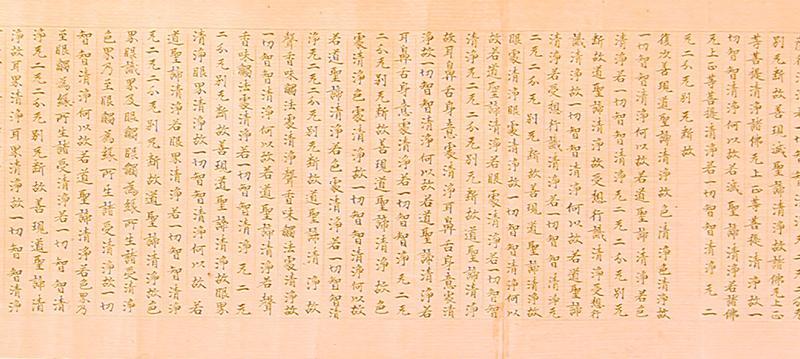 別无斷故善現滅聖諦清淨故諸佛无上正
等菩提清淨諸佛无上正等菩提清淨故一
切智智清淨何以故若滅聖諦清淨若諸佛
无上正等菩提清淨若一切智智清淨无二
无二分无別无斷故
復次善現道聖諦清淨故色清淨色清淨故
一切智智清淨何以故若道聖諦清淨若色
清淨若一切智智清淨无二无二分无別无
斷故道聖諦清淨故受想行識清淨受想行
識清淨故一切智智清淨何以故若道聖諦
清淨若受想行識清淨若一切智智清淨无
二无二分无別无斷故善現道聖諦清淨故
眼處清淨眼處清淨故一切智智清淨何以
故若道聖諦清淨若眼處清淨若一切智智
清淨无二无二分无別无斷故道聖諦清淨
故耳鼻舌身意處清淨耳鼻舌身意處清
淨故一切智智清淨何以故若道聖諦清淨若
耳鼻舌身意處清淨若一切智智清淨无二无
二分无別无斷故善現道聖諦清淨故色
處清淨色處清淨故一切智智清淨何以故
若道聖諦清淨若色處清淨若一切智智清
淨无二无二分无別无斷故道聖諦清淨故
聲香味觸法處清淨聲香味觸法處清淨故
一切智智清淨何以故若道聖諦清淨若聲
香味觸法處清淨若一切智智清淨无二无
二分无別无斷故善現道聖諦清淨故眼界
清淨眼界清淨故一切智智清淨何以故若
道聖諦清淨若眼界清淨若一切智智清淨
无二无二分无別无斷故道聖諦清淨故色
界眼識界及眼觸眼觸為緣所生諸受清淨
色界乃至眼觸為緣所生諸受清淨故一切
智智清淨何以故若道聖諦清淨若色界乃
至眼觸為緣所生諸受清淨若一切智智清
淨无二无二分无別无斷故善現道聖諦清
淨故耳界清淨耳界清淨故一切智智清淨